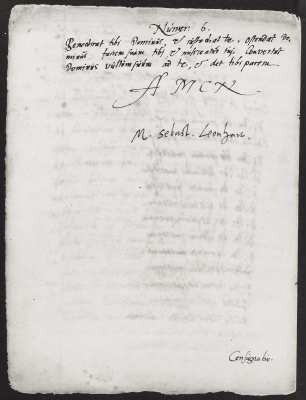 Numer: 6.
Benedicat tibi Dominus, & custodiat te, ostendat Do-
minus faciem suam tibi & misereatur tui, Convertat
Dominus vultum suum ad te, & det tibi pacem.
A M E N
M. Sebast. Leonhart.
Consignatio.